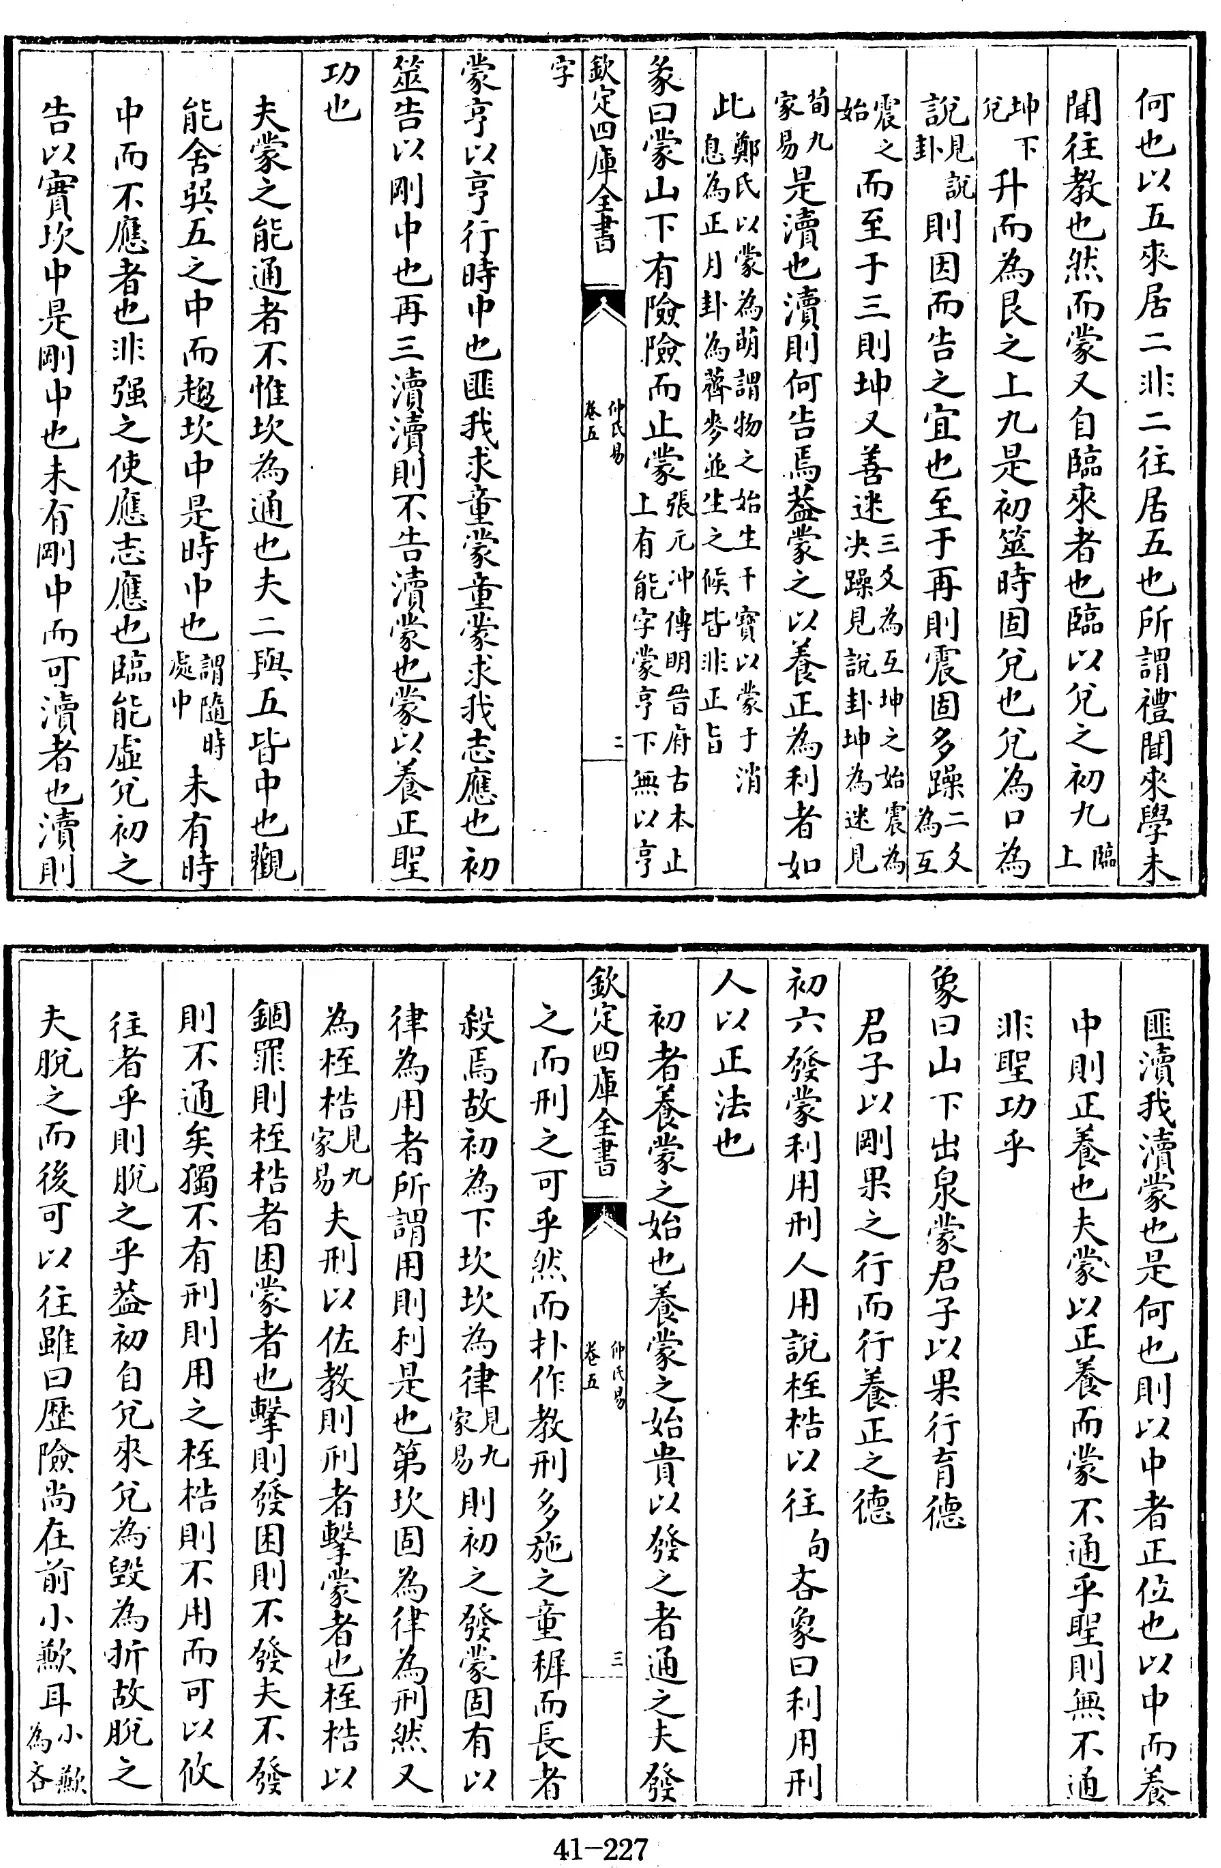 何也以五來居二非二往居五也所謂禮聞來學未
聞往教也然而蒙又自臨來者也臨以兌之初九臨上
坤下兌升而為艮之上九是初筮時固兌也兌為口為
說見說卦則因而告之宜也至于再則震固多躁二爻為互
震之始而至于三則坤又善迷三爻為互坤之始震為決躁見說卦坤為迷見
荀九家易是瀆也瀆則何告焉葢蒙之以養正為利者如
此鄭氏以蒙為萌謂物之始生干寶以蒙于消息為正月卦為薺麥並生之候皆非正旨
彖曰蒙山下有險險而止蒙張元沖傳明晉府古本止上有能字蒙亨下無以亨
字
欽定四庫全書 仲氏易 卷五 二
蒙亨以亨行時中也匪我求童蒙童蒙求我志應也初
筮告以剛中也再三瀆瀆則不告瀆蒙也蒙以養正聖
功也
夫蒙之能通者不惟坎為通也夫二與五皆中也觀
能舍巽五之中而趨坎中是時中也謂隨時處中未有時
中而不應者也非强之使應志應也臨能虛兌初之
告以實坎中是剛中也未有剛中而可瀆者也瀆則
匪瀆我瀆蒙也是何也則以中者正位也以中而養
中則正養也夫蒙以正養而蒙不通乎聖則無不通
非聖功乎
象曰山下出泉蒙君子以果行育德
君子以剛果之行而行養正之德
初六發蒙利用刑人用說桎梏以往句吝象曰利用刑
人以正法也
初者養蒙之始也養蒙之始貴以發之者通之夫發
欽定四庫全書 仲氏易 卷五 三
之而刑之可乎然而扑作教刑多施之童穉而長者
殺焉故初為下坎坎為律見九家易則初之發蒙固有以
律為用者所謂用則利是也第坎固為律為刑然又
為桎梏見九家易夫刑以佐教則刑者擊蒙者也桎梏以
錮罪則桎梏者困蒙者也擊則發困則不發夫不發
則不通矣獨不有刑則用之桎梏則不用而可以攸
往者乎則脫之乎葢初自兌來兌為毀為折故脫之
夫脫之而後可以往雖曰歷險尚在前小歉耳小歉為吝
41-227